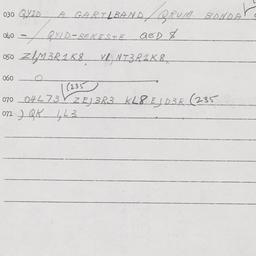 030 QYID A GARTLBAND / QRUM BONDA
040 - / QYID-BEKESTE QED
050 ZL,M3R1K8. VL,NT3R1K8.
060 O
(235
070 O4L73 ZEJ3R3 KL8 EJD3R (235
072 ) QK 1,L3